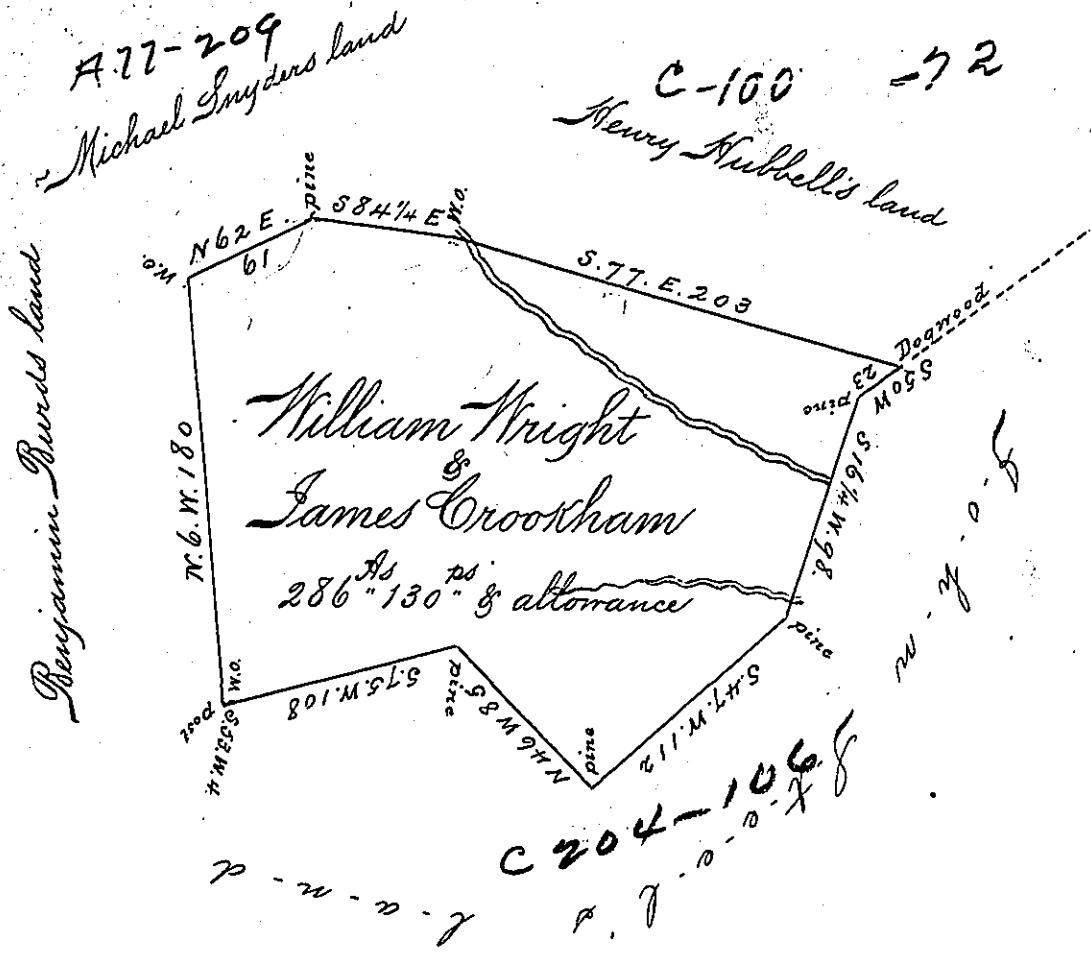 A.77-209
Michael Snyders land
C-100 -72
Henry Hubbell's land
Benjamin Burds land
W.O.
N 62 E.
61
pine
S 84 1/4 E
W.O.
S. 77. E. 203
Dogwood
S 50 W
23
pine
S 16 1/4 W. 98.
pine
S. 47. W. 112
pine
N 46 W 85
pine
S. 75. W. 108
W.O.
post
S. 53. W. 4
N. 6. W. 180
William Wright
&
James Crookham
As ps
286 " 130 " & allowance
C 204-106
l - a - n - d